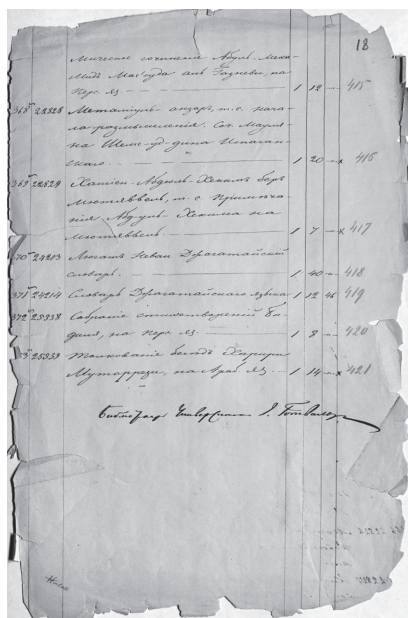 18
мическое сочиненіе Абуль-Маха-
мидъ Мас'уда аль Газневи, на
Перс. яз. — 1 12 — 415
368 22826 Металиуль-анзаръ, т. е. нача-
ла размышленія. Соч. Мауля-
на Шемс-уд-дина Испаган-
скаго. — 1 20 — x 416
369 22829 Хашіеи-Абдюль-Хекимъ беръ
Мютяввель, т. е. Примѣча-
нія Абдуль Хекима на
Мютяввель. — 1 7 — x 417
370 24213 Люгати Неваи Джагатайскій
словарь. — 1 40 — 418
371 24214 Словарь Джагатайскаго языка 1 12 46 419
372 25338 Собраніе стихотвореній
на перс. яз. — 1 8 — 420
25339 Толкованіе Харири
Мутаррези, на Араб. яз. — 1 14 — x 421
Библіотекарь Университета І. Готвальдъ